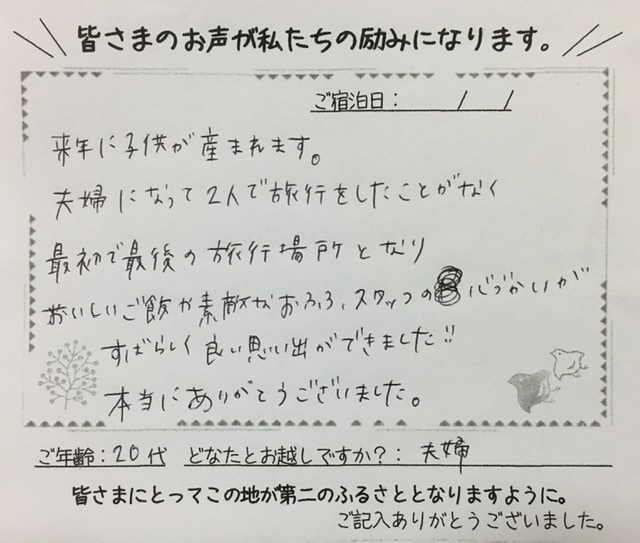 皆さまのお声が私たちの励みになります。
ご宿泊日: / /
来年に子供が産まれます。
夫婦になって2人で旅行をしたことがなく
最初で最後の旅行場所となり
おいしいご飯や素敵なおふろ、スタッフの心づかいが
すばらしく良い思い出ができました!!
本当にありがとうございました。
ご年齢:20代 どなたとお越しですか?: 夫婦
皆さまにとってこの地が第二のふるさととなりますように。
ご記入ありがとうございました。